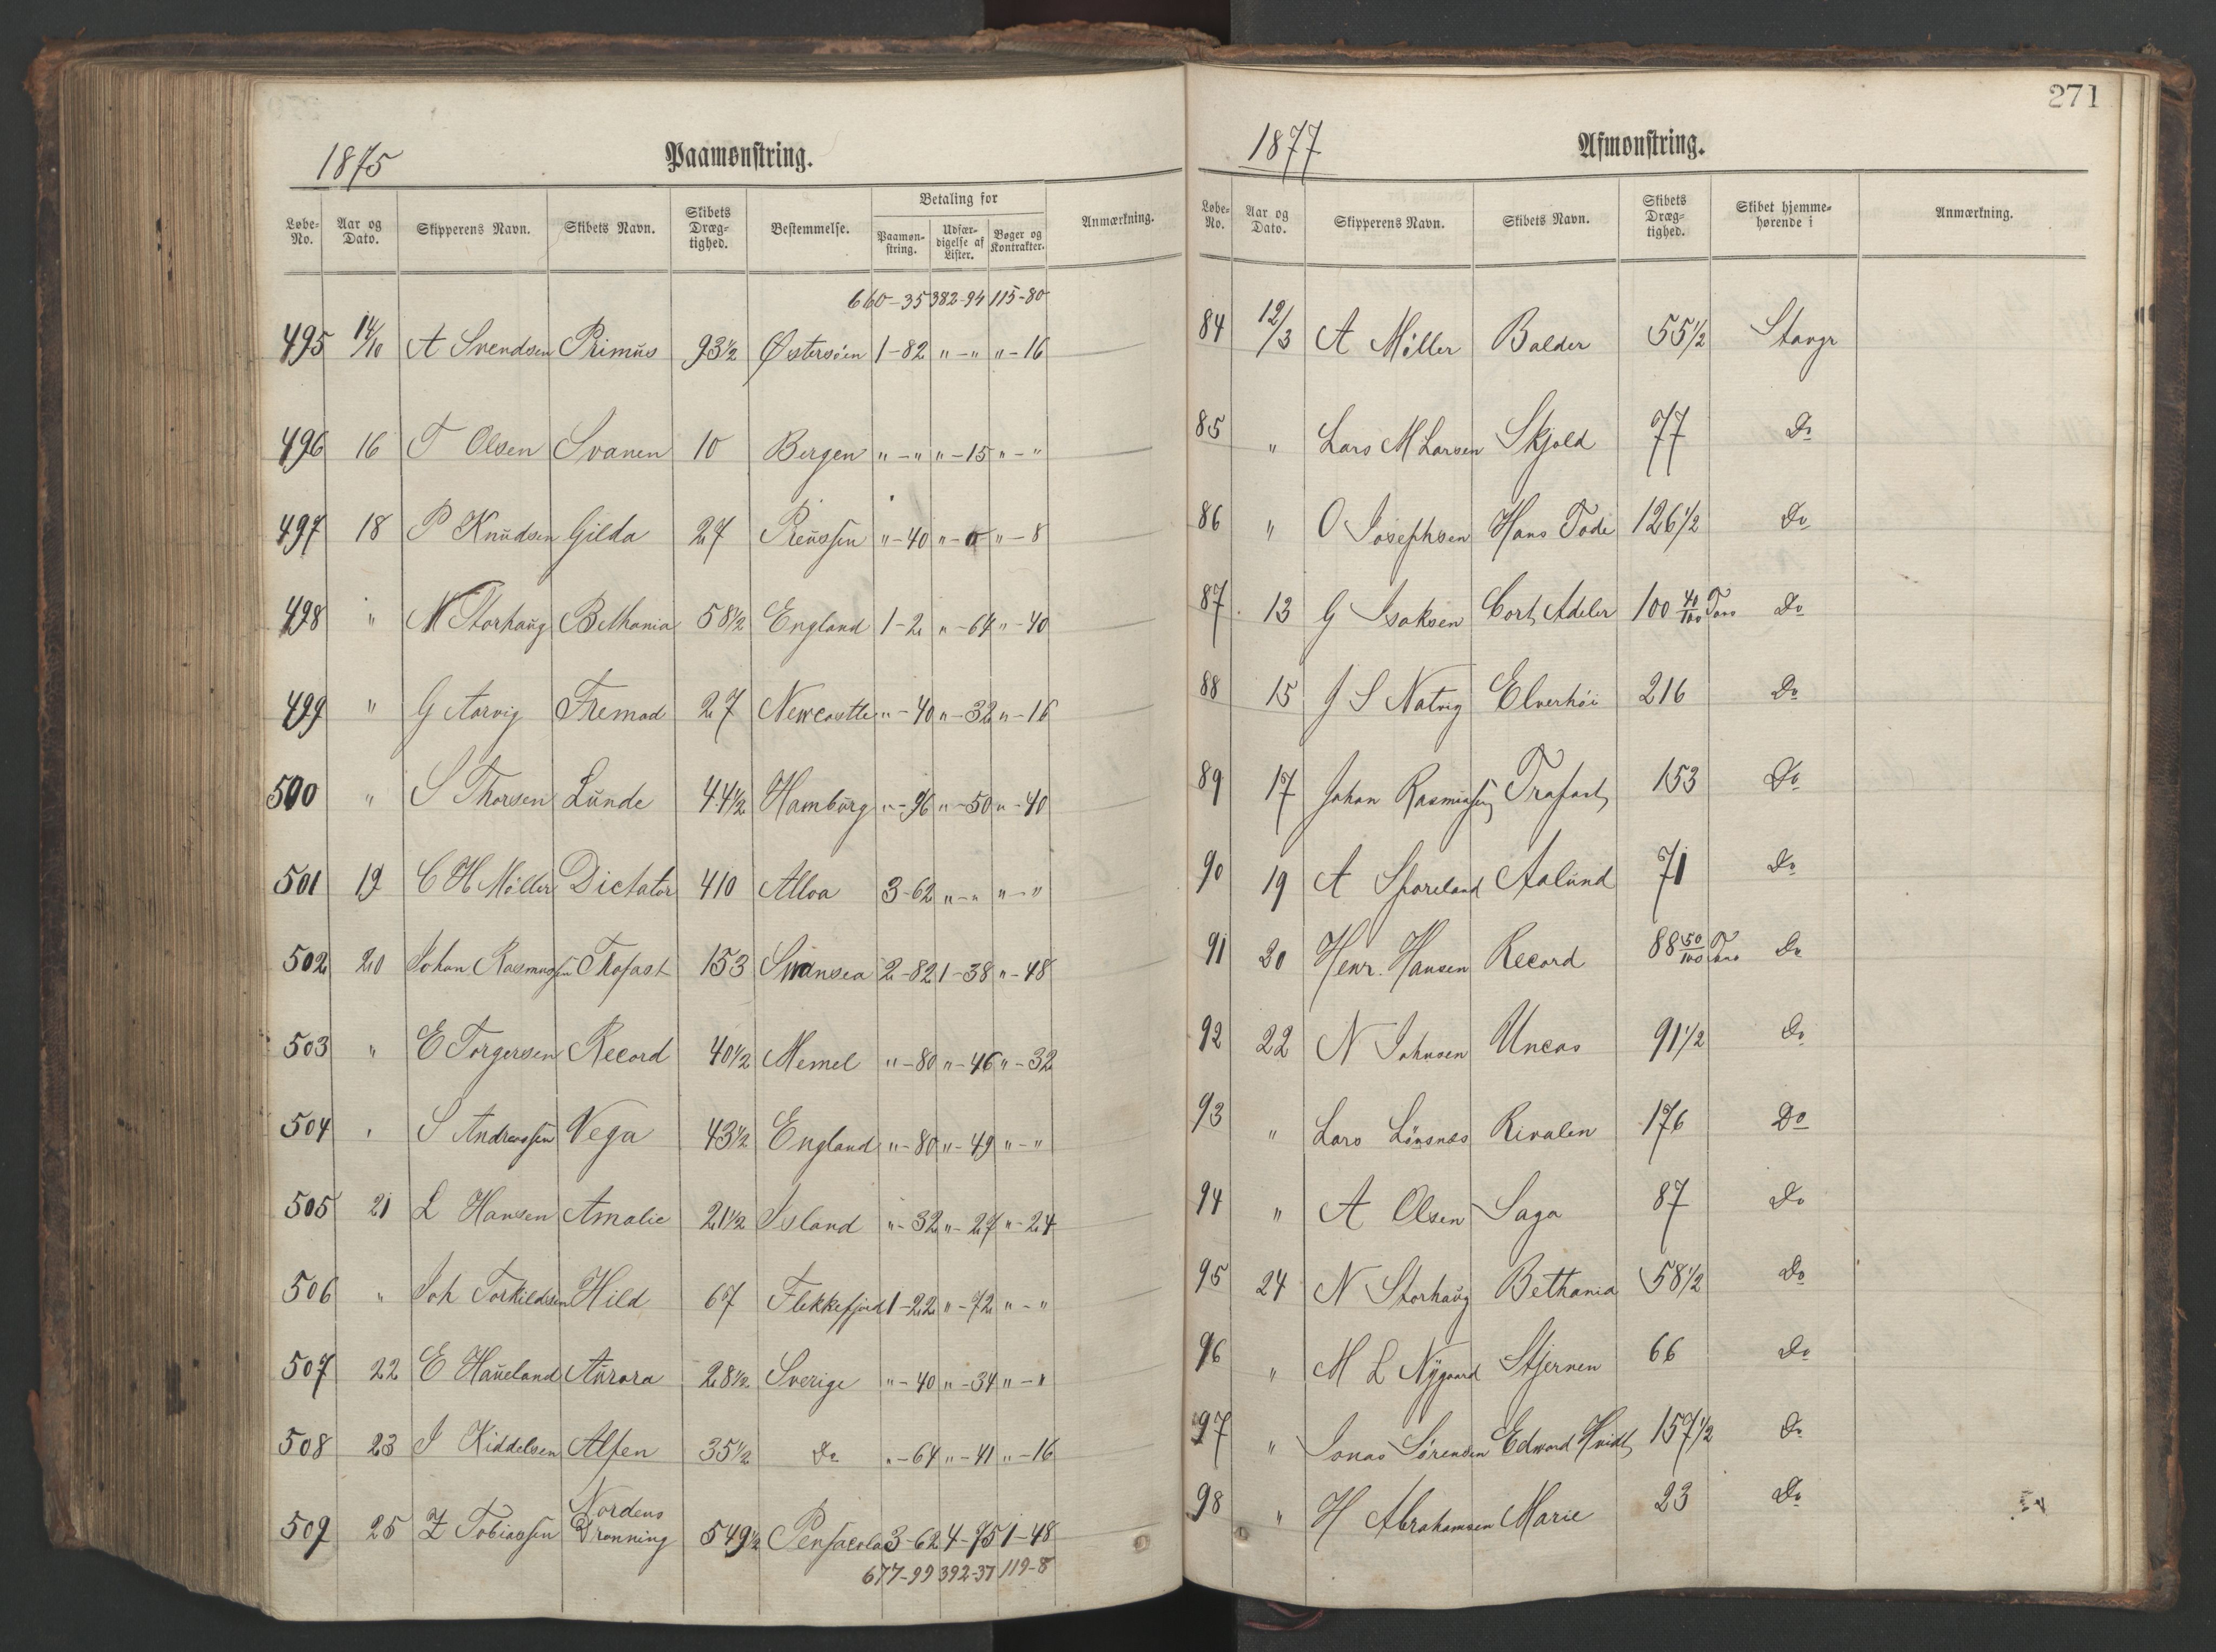 1875 Paamønstring.
Løbe-No. Aar og Dato. Skipperens Navn. Skibets Navn. Skibets Dræg-tighed. Bestemmelse. Betaling for Paamøn-string. Udfær-digelse af Lister. Bøger og Kontrakter. Anmærkning.
660-35 382-94 115-80
495 14/10 A Svendsen Primus 93 1/2 Østersöen 1-82 "-" "-16
496 16 T Olsen Svanen 10 Bergen "-" "-15 "-"
497 18 P Knudsen Gilda 27 Preussen "-40 "-0 "-8
498 " N Storhaug Bethania 58 1/2 England 1-2 "-64 "-40
499 " G Aarvig Fremad 27 Newcastle "-40 "-32 "-16
500 " S Thorsen Lunde 44 1/2 Hamburg "-96 "-50 "-40
501 19 C H Möller Dictator 410 Alloa 3-62 "-" "-"
502 20 Johan Rasmussen Trofast 153 Swansea 2-82 1-38 "-48
503 " E Torgersen Record 40 1/2 Memel "-80 "-46 "-32
504 " S Andreassen Vega 43 1/2 England "-80 "-49 "-"
505 21 L Hansen Amalie 21 1/2 Island "-32 "-27 "-24
506 " Joh Torkildsen Hild 67 Flekkefjord 1-22 "-72 "-"
507 22 E Haueland Aurora 28 1/2 Sverige "-40 "-34 "-"
508 23 J Kiddelsen Alfen 35 1/2 Do "-64 "-41 "-16
509 25 Z Tobiassen Nordens Dronning 549 1/2 Pensacola 3-62 4-75 1-48
677-99 392-37 119-8
271
1877 Afmønstring.
Løbe-No. Aar og Dato. Skipperens Navn. Skibets Navn. Skibets Dræg-tighed. Skibet hjemme-hørende i Anmærkning.
84 12/3 A Möller Balder 55 1/2 Stavgr
85 " Lars M Larsen Skjold 77 Do
86 " O Josephsen Hans Tode 126 1/2 Do
87 13 G Isaksen Cort Adeler 100 40/100 Tons Do
88 15 J S Natvig Elverhöi 216 Do
89 17 Johan Rasmussen Trofast 153 Do
90 19 A Aalund 71 Do
91 20 Henr. Hansen Record 88 50/100 Tons Do
92 22 N Johnsen Uncas 91 1/2 Do
93 " Lars Lönsnes Rivalen 176 Do
94 " A Olsen Saga 87 Do
95 24 N Storhaug Bethania 58 1/2 Do
96 " M L Nygaard Stjernen 66 Do
97 " Jonas Sörensen Edward Hvidt 157 1/2 Do
98 " H Abrahamsen Marie 23 Do